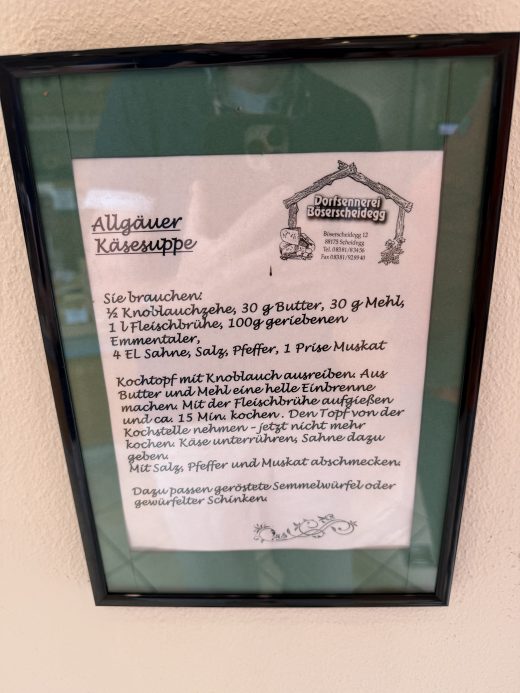 Dorfsennerei
Böserscheidegg
Böserscheidegg 12
88175 Scheidegg
Tel. 08381/83456
Fax 08381/928940
Allgäuer
Käsesuppe
Sie brauchen:
½ Knoblauchzehe, 30 g Butter, 30 g Mehl,
1 l Fleischbrühe, 100g geriebenen
Emmentaler,
4 EL Sahne, Salz, Pfeffer, 1 Prise Muskat
Kochtopf mit Knoblauch ausreiben. Aus
Butter und Mehl eine helle Einbrenne
machen. Mit der Fleischbrühe aufgießen
und ca. 15 Min. kochen . Den Topf von der
Kochstelle nehmen – jetzt nicht mehr
kochen. Käse unterrühren, Sahne dazu
geben.
Mit Salz, Pfeffer und Muskat abschmecken.
Dazu passen geröstete Semmelwürfel oder
gewürfelter Schinken.